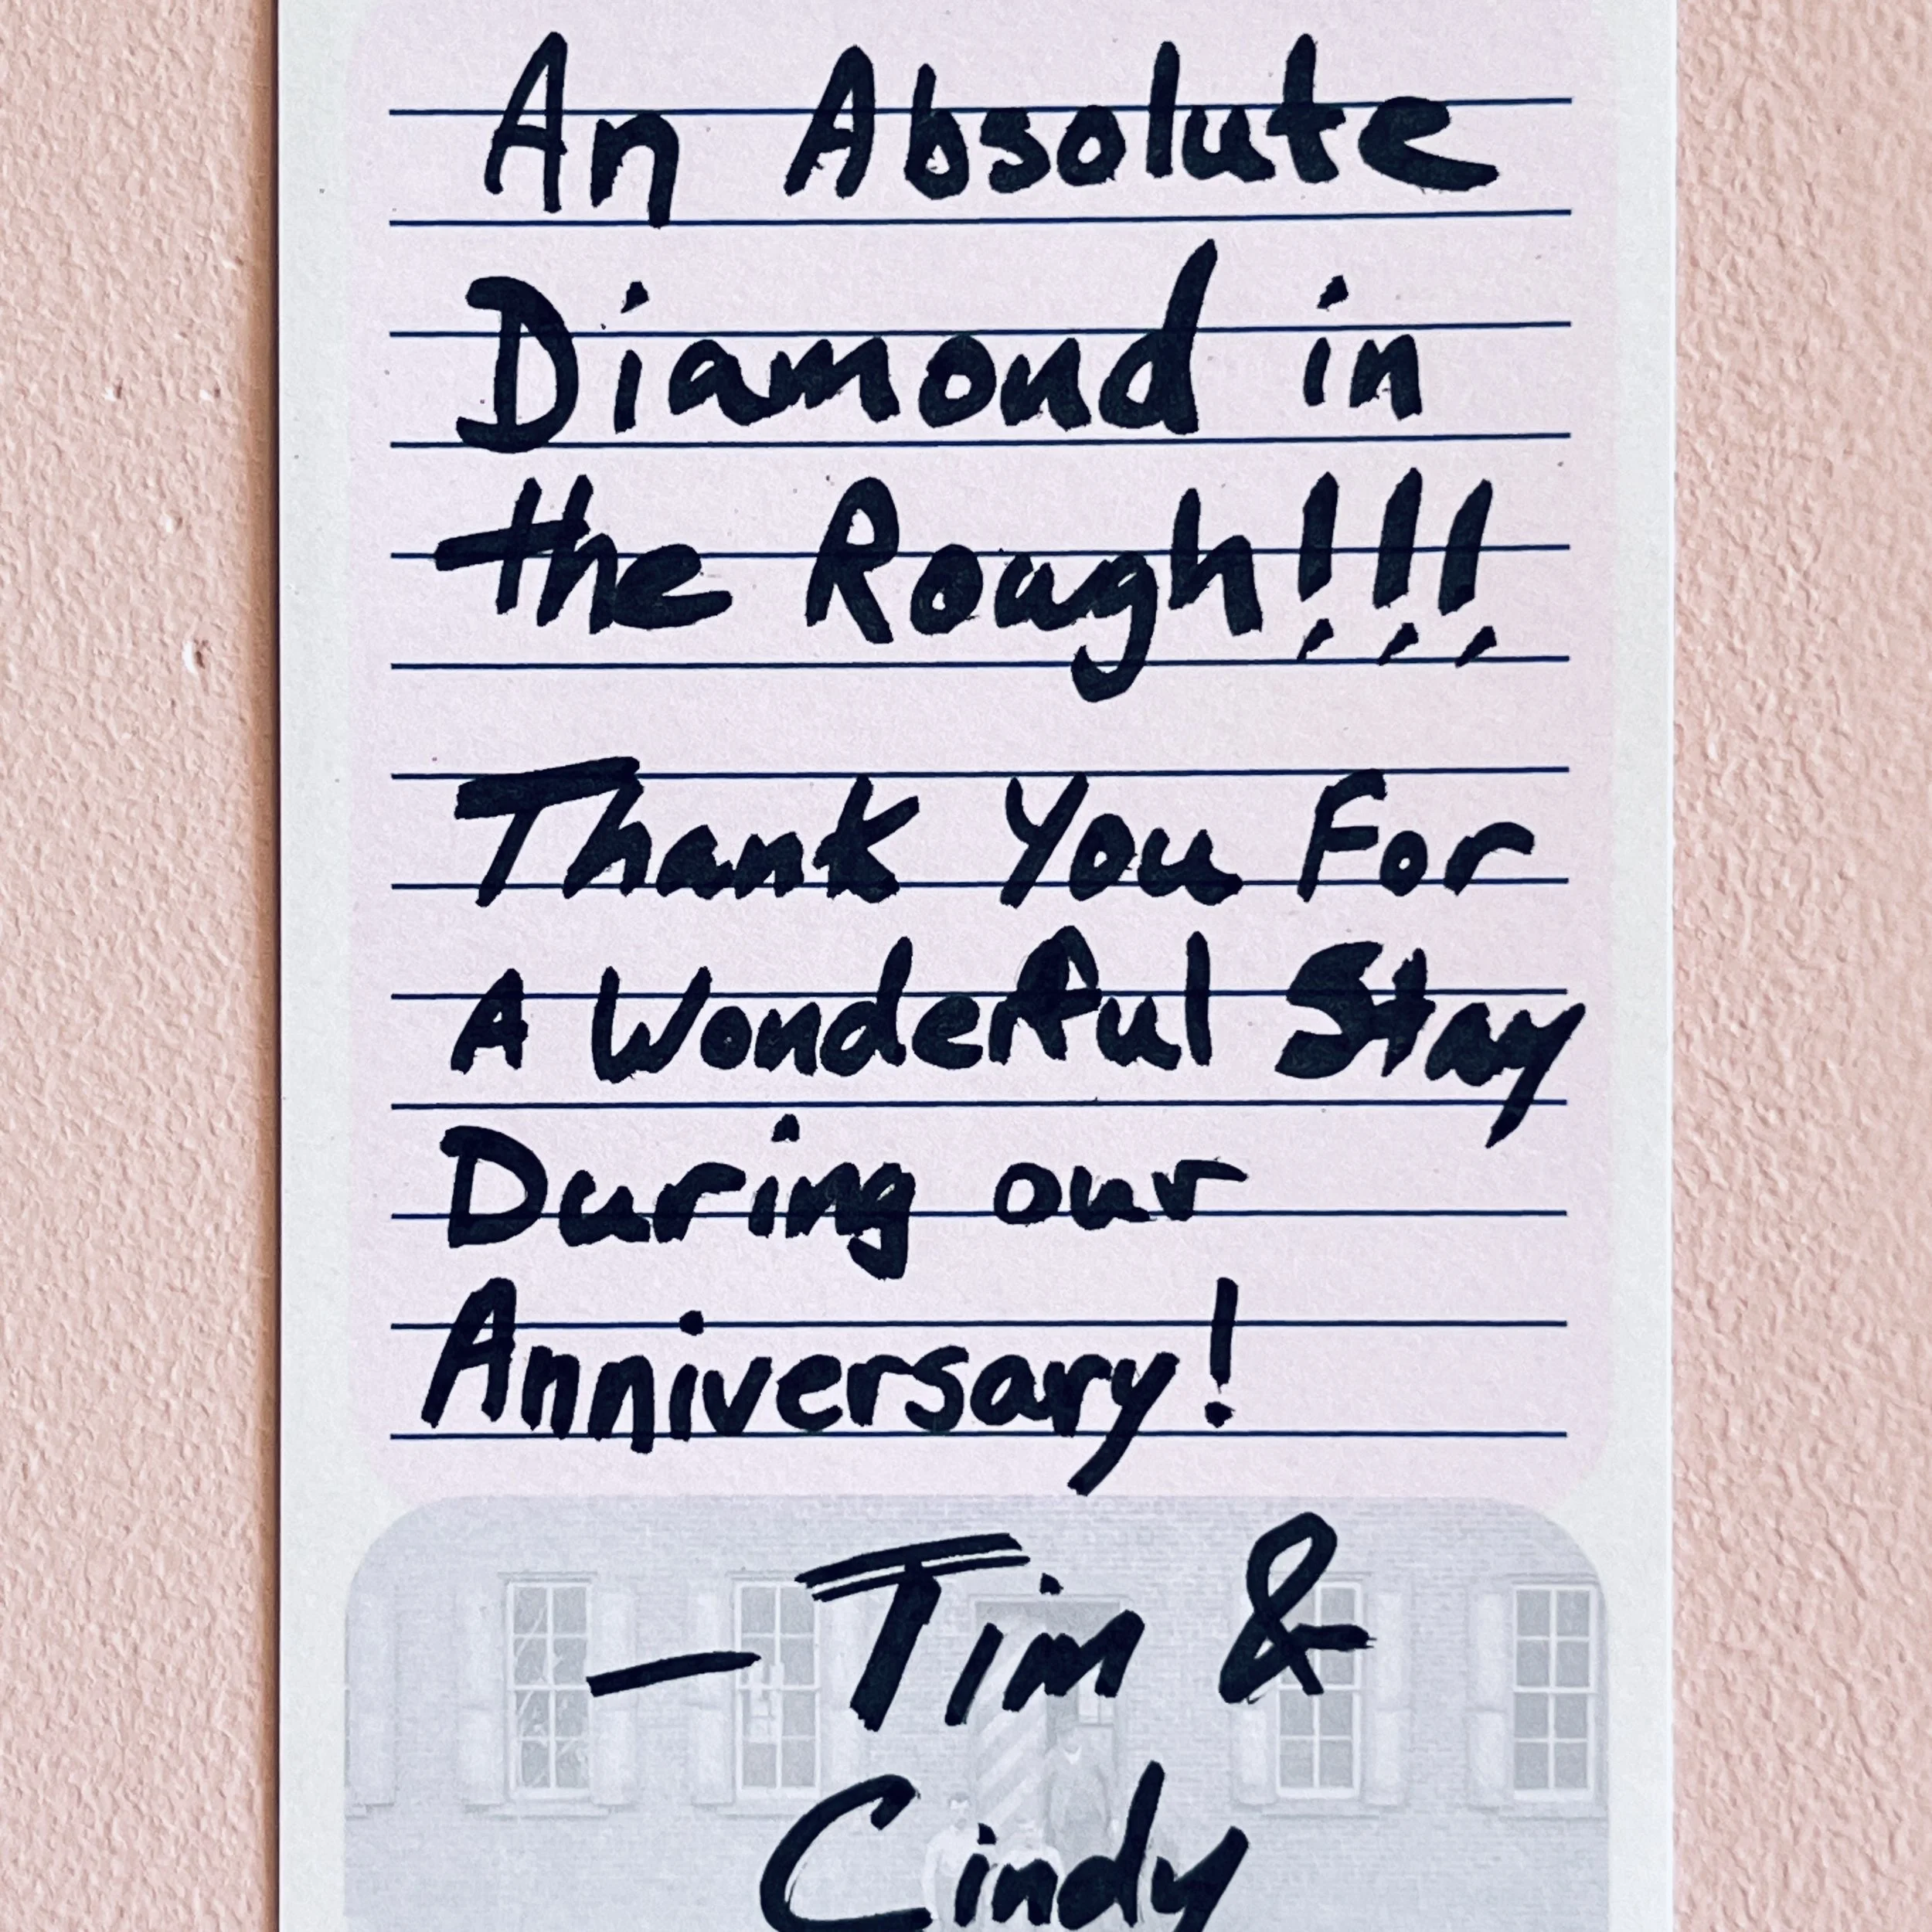 An Absolute
Diamond in
the Rough!!!
Thank You For
A Wonderful Stay
During our
Anniversary!
— Tim &
Cindy